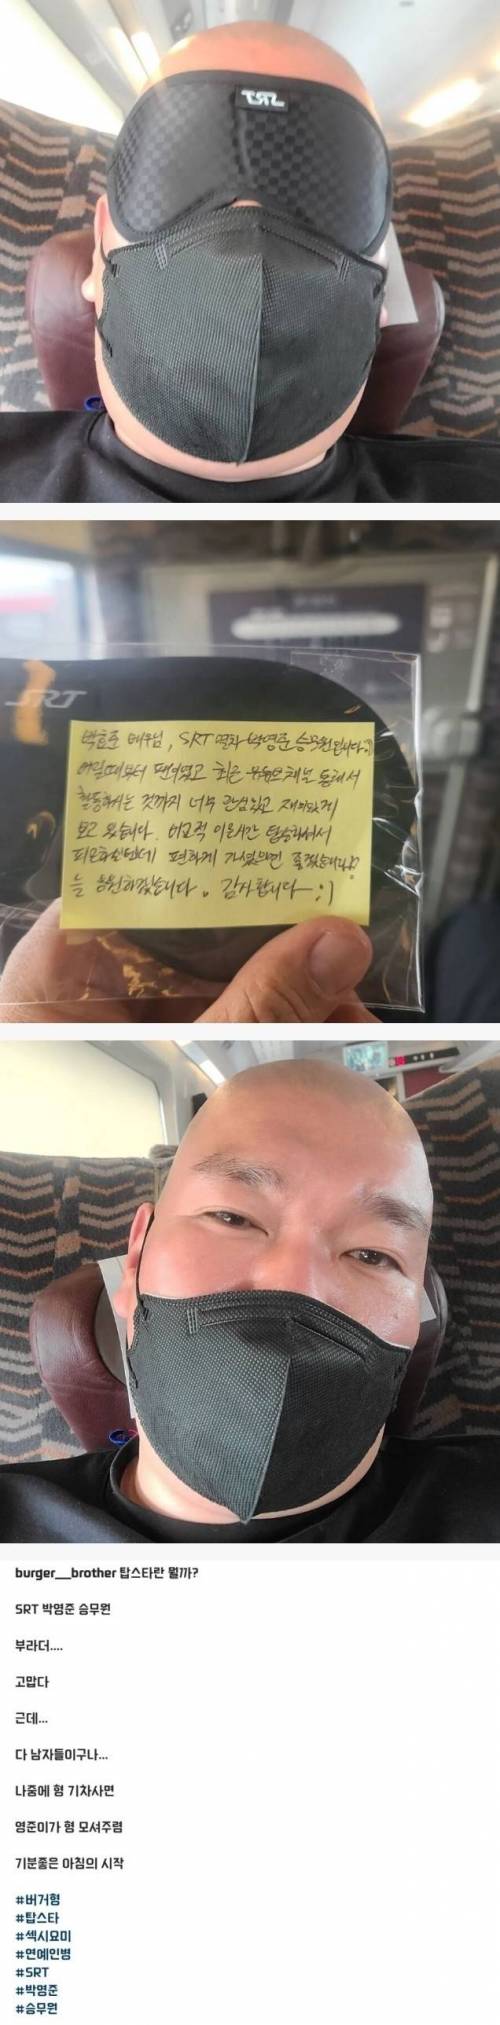 SRT
SRT
박효준 배우님, SRT 열차 박영준 승무원입니다:)
어릴때부터 팬이였고 최근 유튜브채널 통해서
활동하시는 것까지 너무 관심있고 재미있게
보고 있습니다. 비교적 이른시간 탑승하셔서
피곤하실텐데 편하게 가셨으면 좋겠습니다!?
늘 응원하겠습니다. 감사합니다-:)
burger__brother 탑스타란 뭘까?
SRT 박영준 승무원
부라더....
고맙다
근데...
다 남자들이구나...
나중에 형 기차사면
영준이가 형 모셔주렴
기분좋은 아침의 시작
#버거형
#탑스타
#섹시묘미
#연예인병
#SRT
#박영준
#승무원